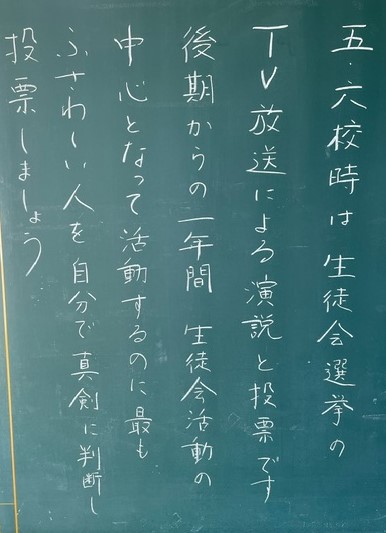 五・六校時は生徒会選挙の
TV放送による演説と投票です
後期からの一年間 生徒会活動の
中心となって活動するのに最も
ふさわしい人を自分で真剣に判断し
投票しましょう